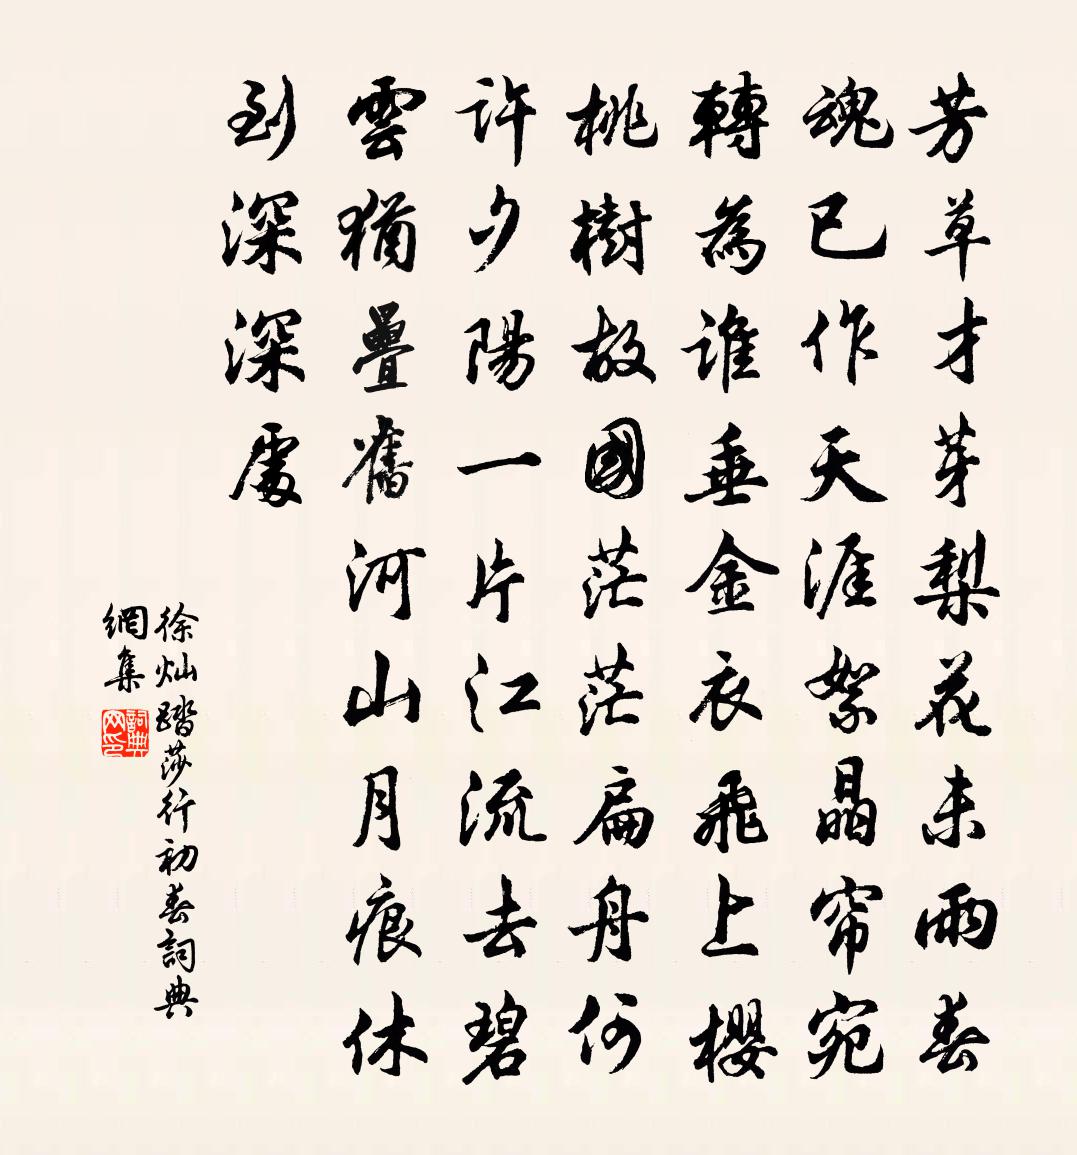 芳草才芽梨花未雨春
魂已作天涯絮晶帘宛
轉為誰垂金衣飛上櫻
桃樹故國茫茫扁舟何
許夕陽一片江流去碧
雲猶疊舊河山月痕休
到深深處
徐灿踏莎行初春詞典
網集
詞典
网印